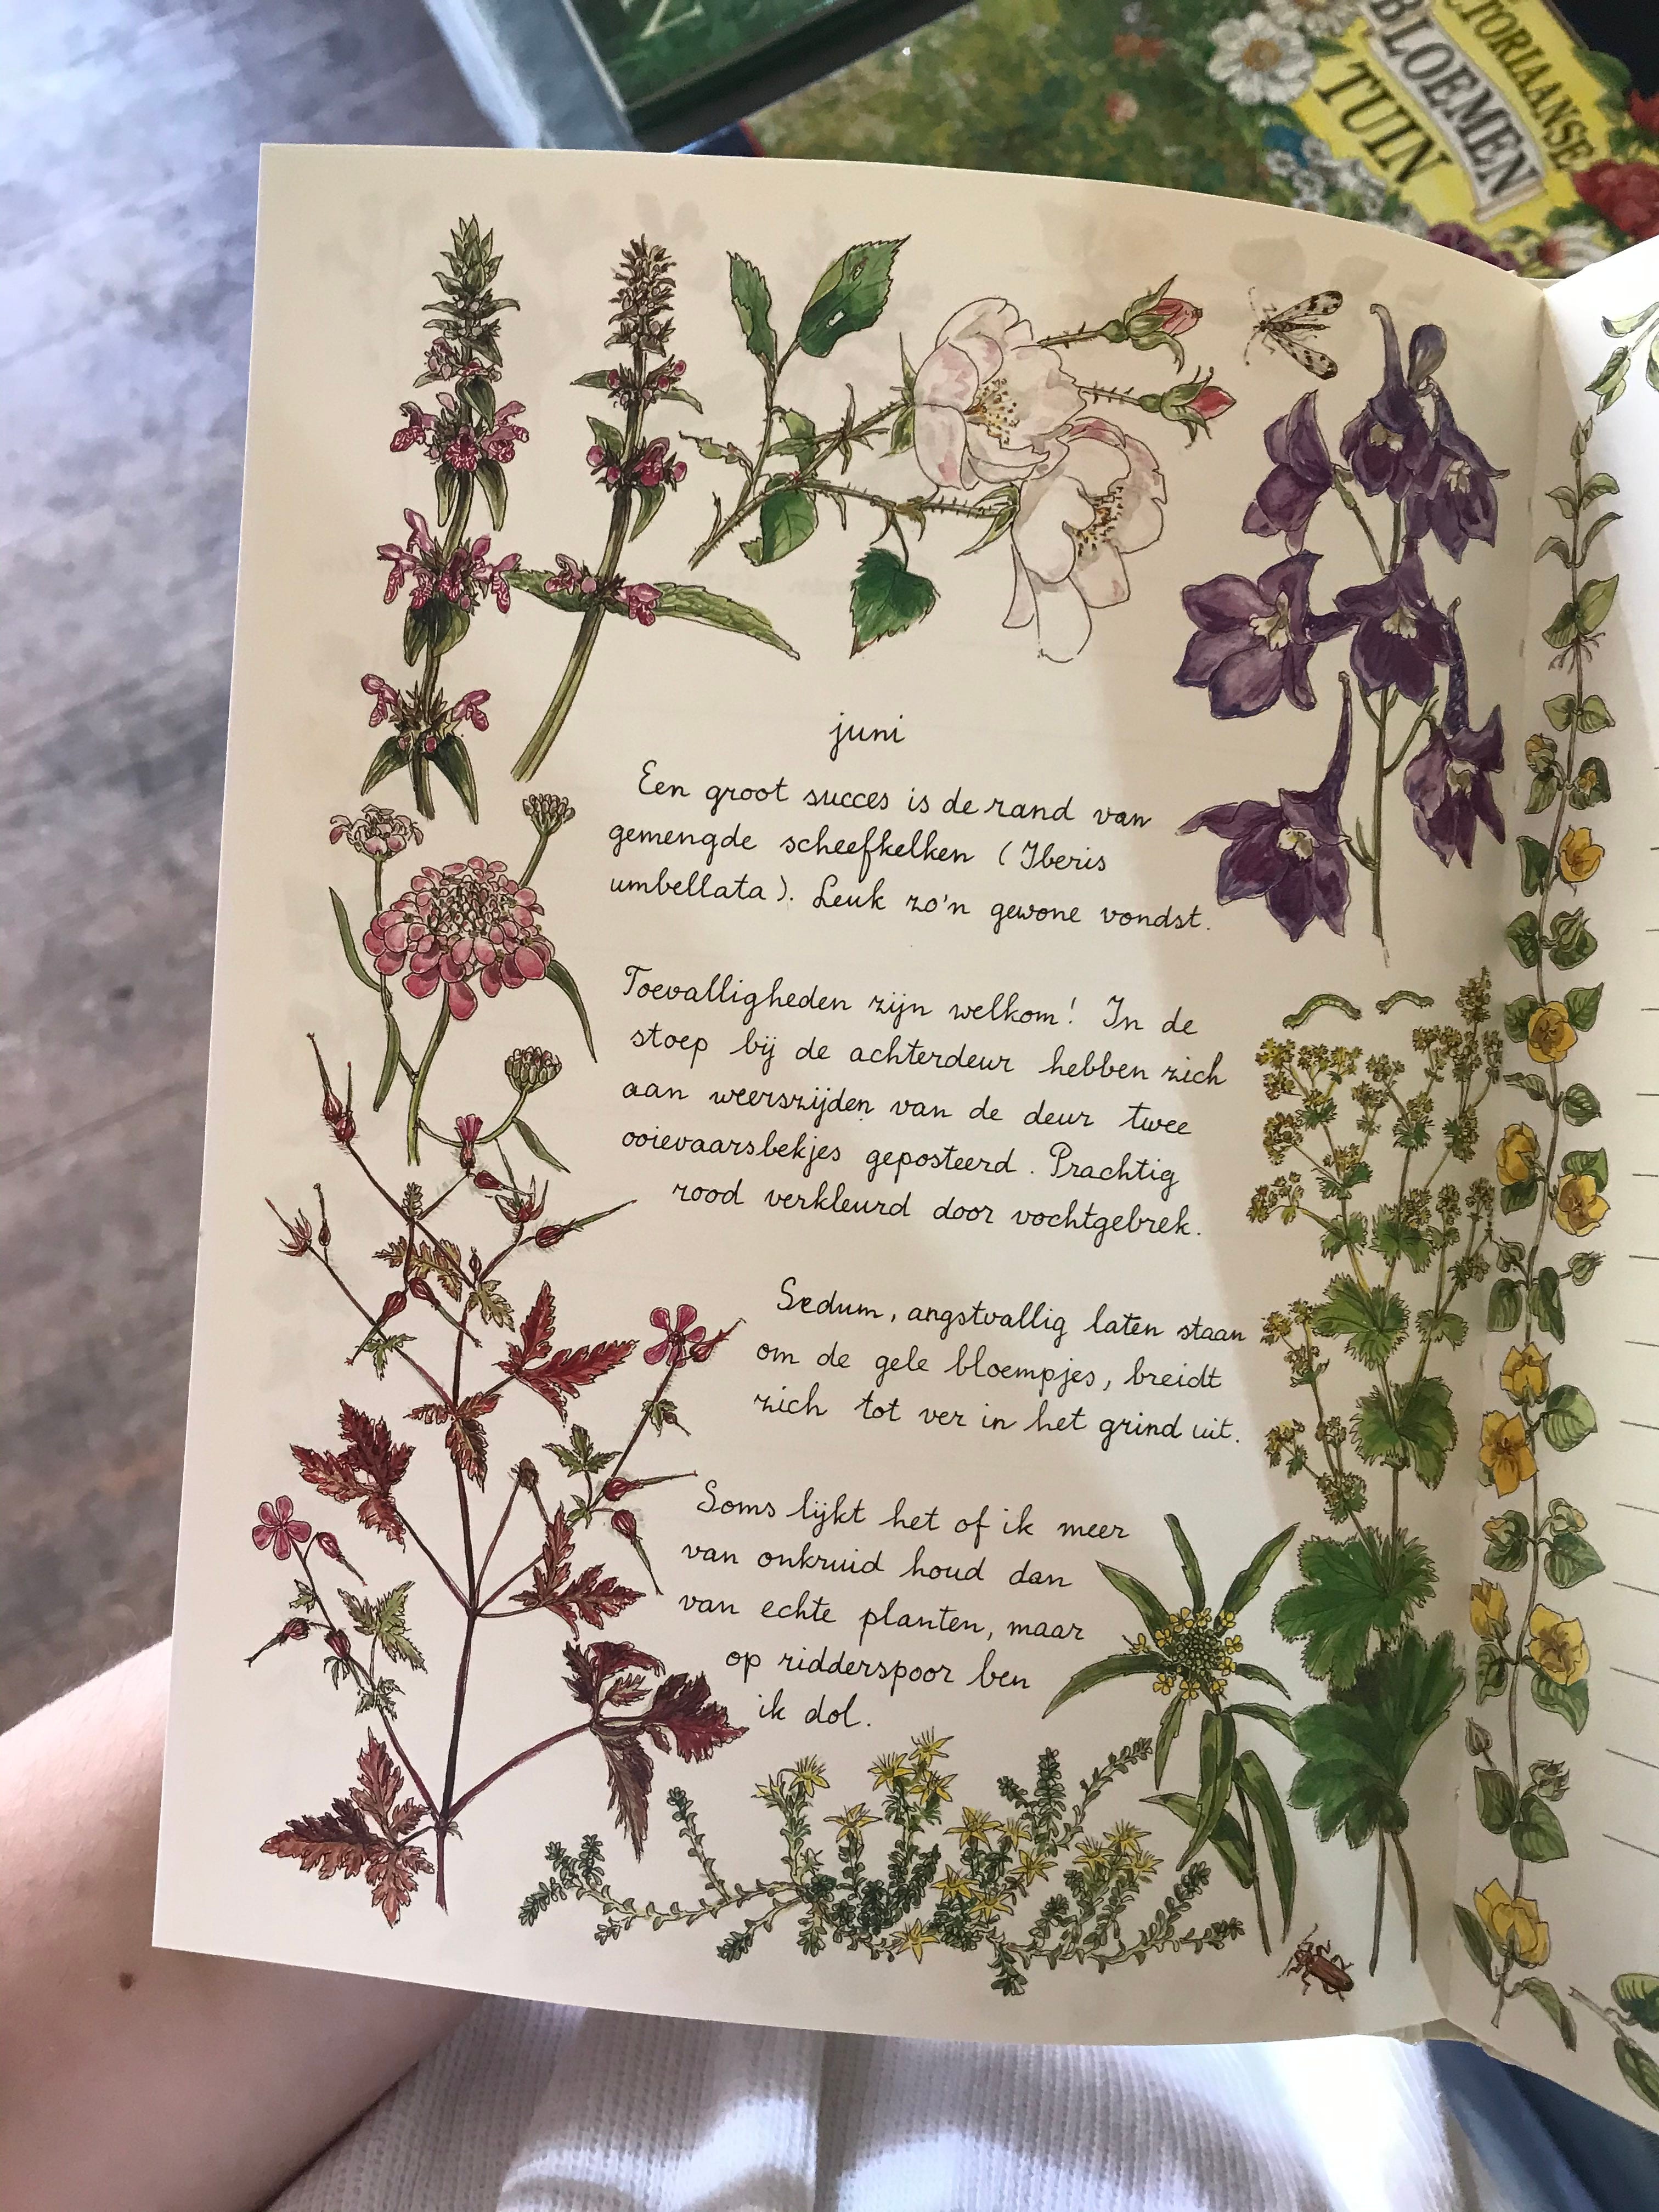 CTORIAANSE
BLOEMEN
TUIN
juni
Een groot succes is de rand van
gemengde scheefkelken (Iberis
umbellata). Leuk zo'n gewone vondst.
Toevalligheden zijn welkom! In de
stoep bij de achterdeur hebben zich
aan weerszijden van de deur twee
ooievaarsbekjes geposteerd. Prachtig
rood verkleurd door vochtgebrek.
Sedum, angstvallig laten staan
om de gele bloempjes, breidt
zich tot ver in het grind uit.
Soms lijkt het of ik meer
van onkruid houd dan
van echte planten, maar
op ridderspoor ben
ik dol.